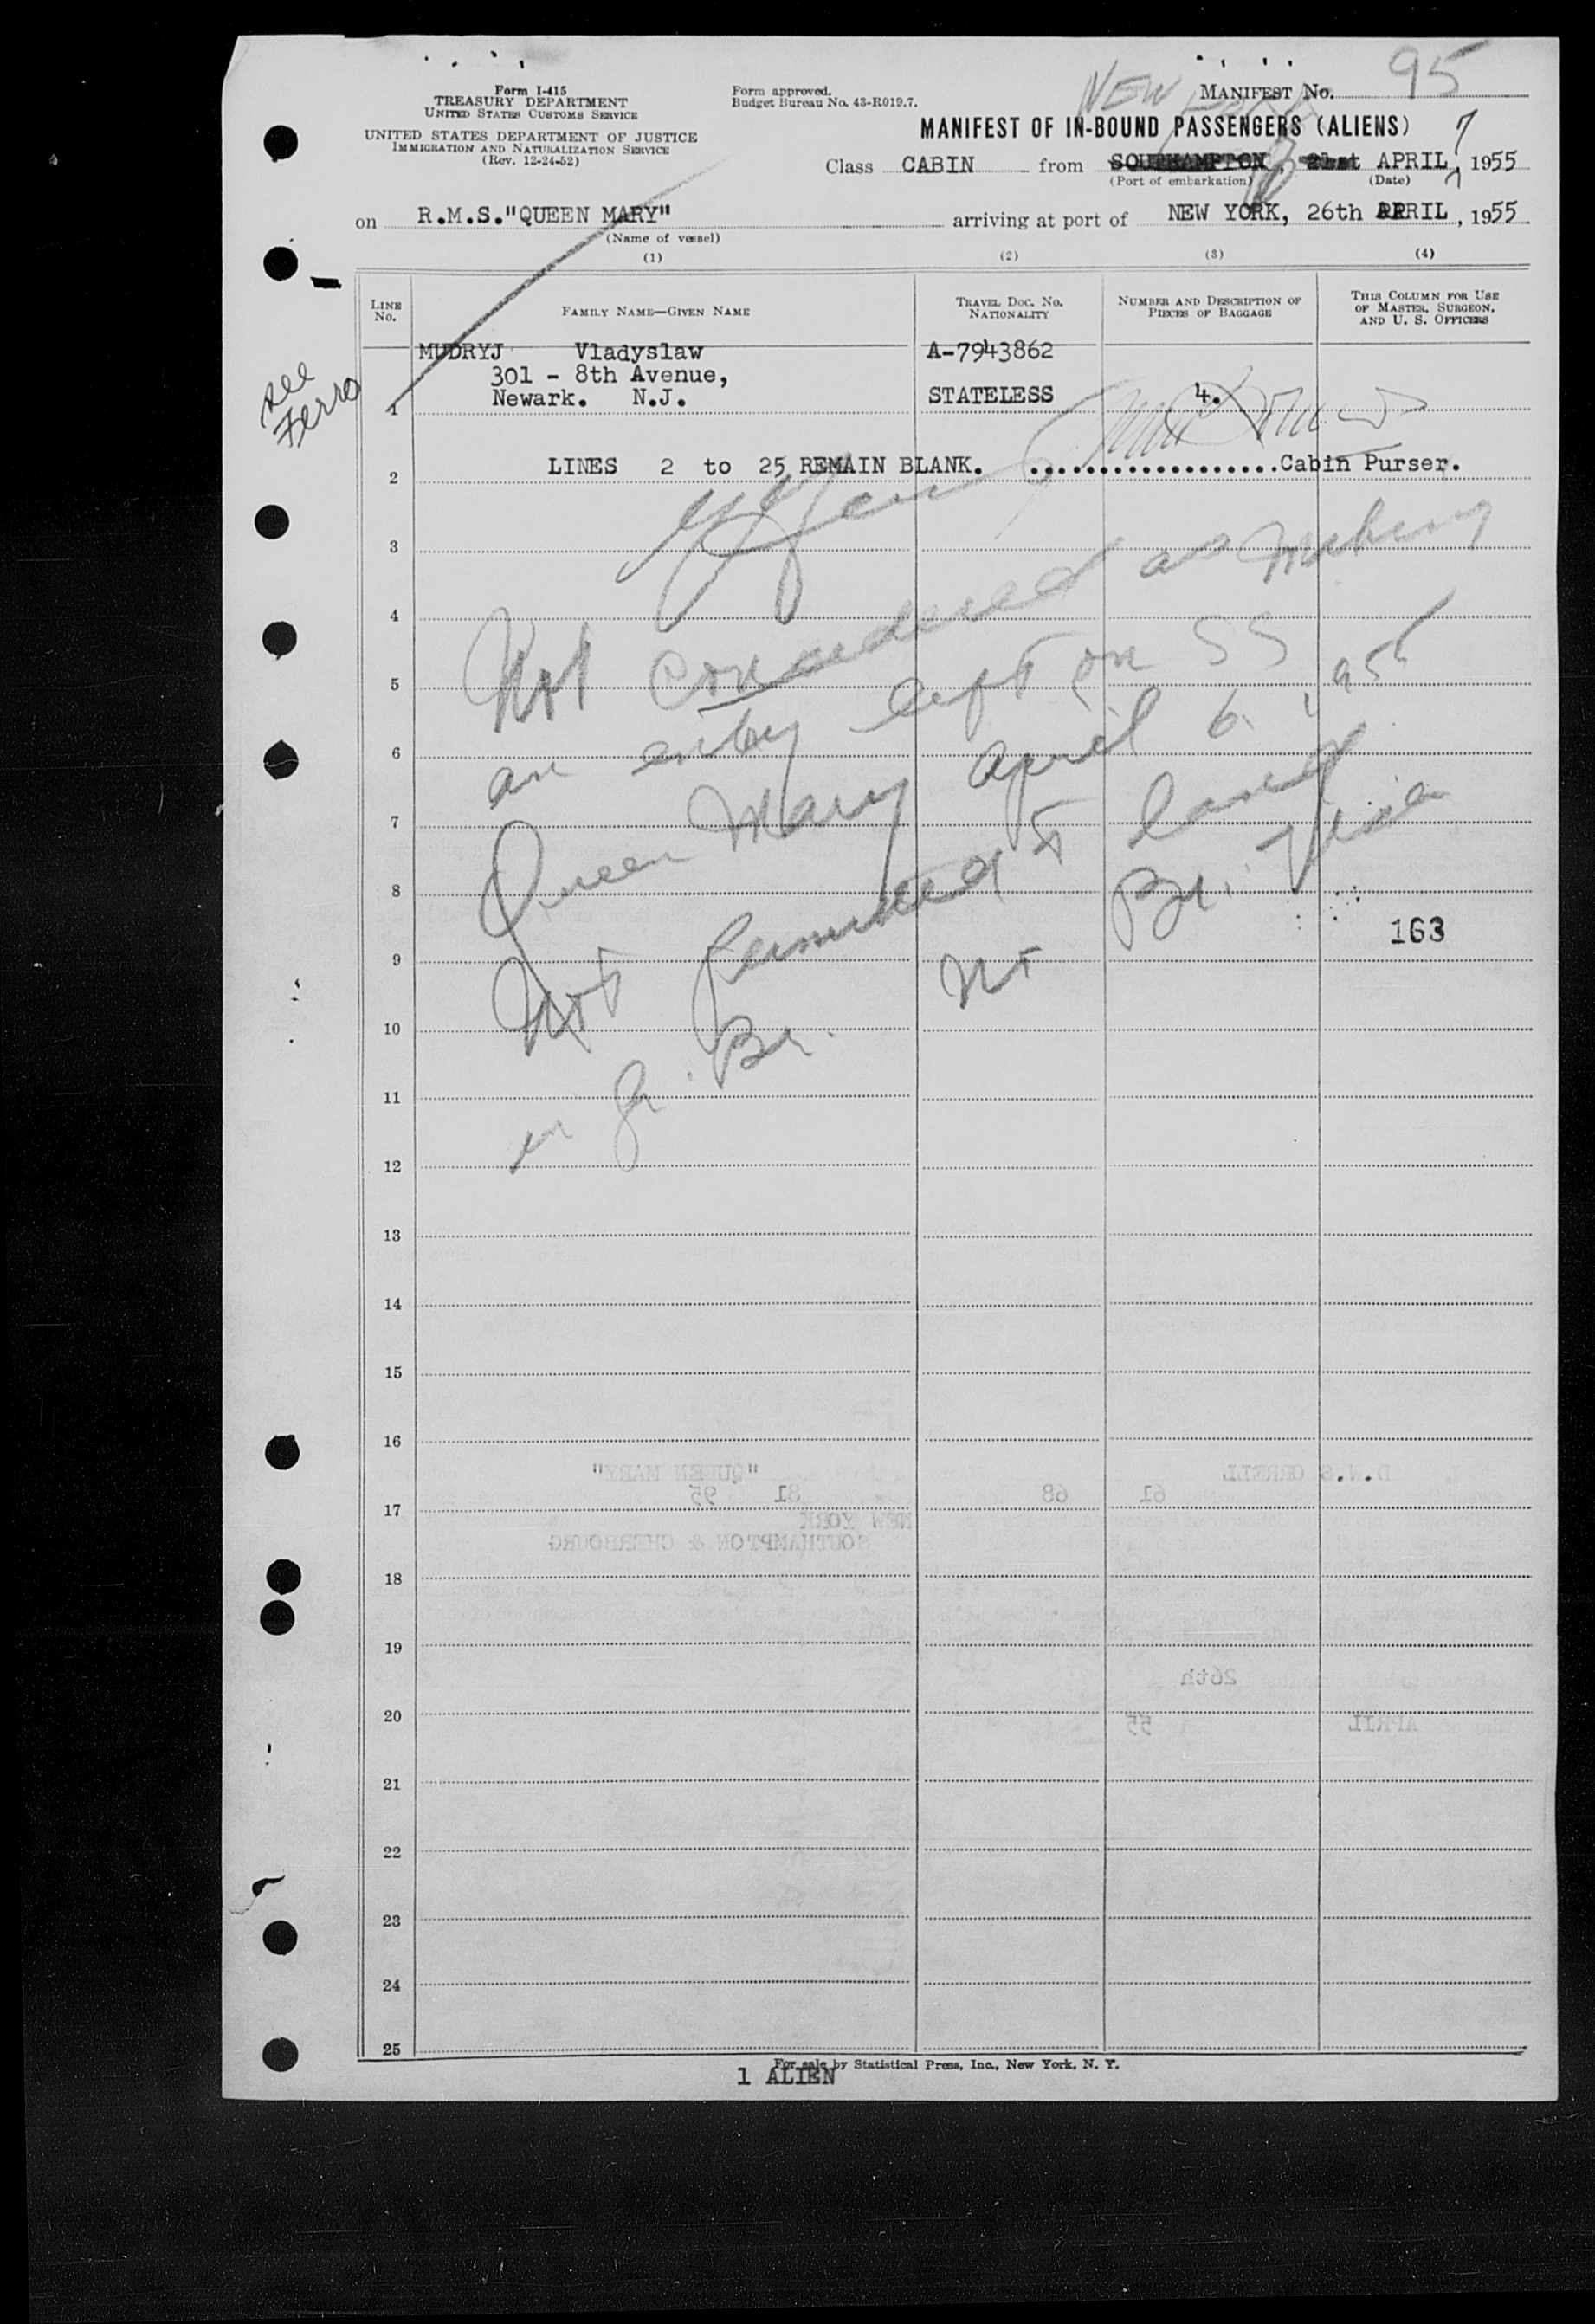 95
NEW YORK
Form I-415
TREASURY DEPARTMENT
UNITED STATES CUSTOMS SERVICE
UNITED STATES DEPARTMENT OF JUSTICE
IMMIGRATION AND NATURALIZATION SERVICE
(Rev. 12-24-52)
Form approved.
Budget Bureau No. 43-R019.7.
MANIFEST No.
MANIFEST OF IN-BOUND PASSENGERS (ALIENS)
7
Class CABIN from SOUTHAMPTON, 21st APRIL, 1955
(Port of embarkation) (Date)
on R.M.S."QUEEN MARY" arriving at port of NEW YORK, 26th APRIL, 1955
(Name of vessel)
(1) (2) (3) (4)
LINE No.
FAMILY NAME—GIVEN NAME
TRAVEL DOC. No. NATIONALITY
NUMBER AND DESCRIPTION OF PIECES OF BAGGAGE
THIS COLUMN FOR USE OF MASTER, SURGEON, AND U. S. OFFICERS
see
Ferro
MUDRYJ Vladyslaw A-7943862
301 - 8th Avenue,
1 Newark. N.J. STATELESS 4.
2 LINES 2 to 25 REMAIN BLANK. ...................Cabin Purser.
3
4
5
6
7
8
9
10
11
12
13
14
15
16
17
18
19
20
21
22
23
24
25
Not considered as making
an entry left on SS
Queen Mary April 6, 1955
Not permitted to land
in Gr. Br. No Br. Visa
163
D.W.S ORRELL
"QUEEN MARY"
61 68 81 95
NEW YORK
SOUTHAMPTON & CHERBOURG
26th
APRIL 55
For sale by Statistical Press, Inc., New York, N. Y.
1 ALIEN